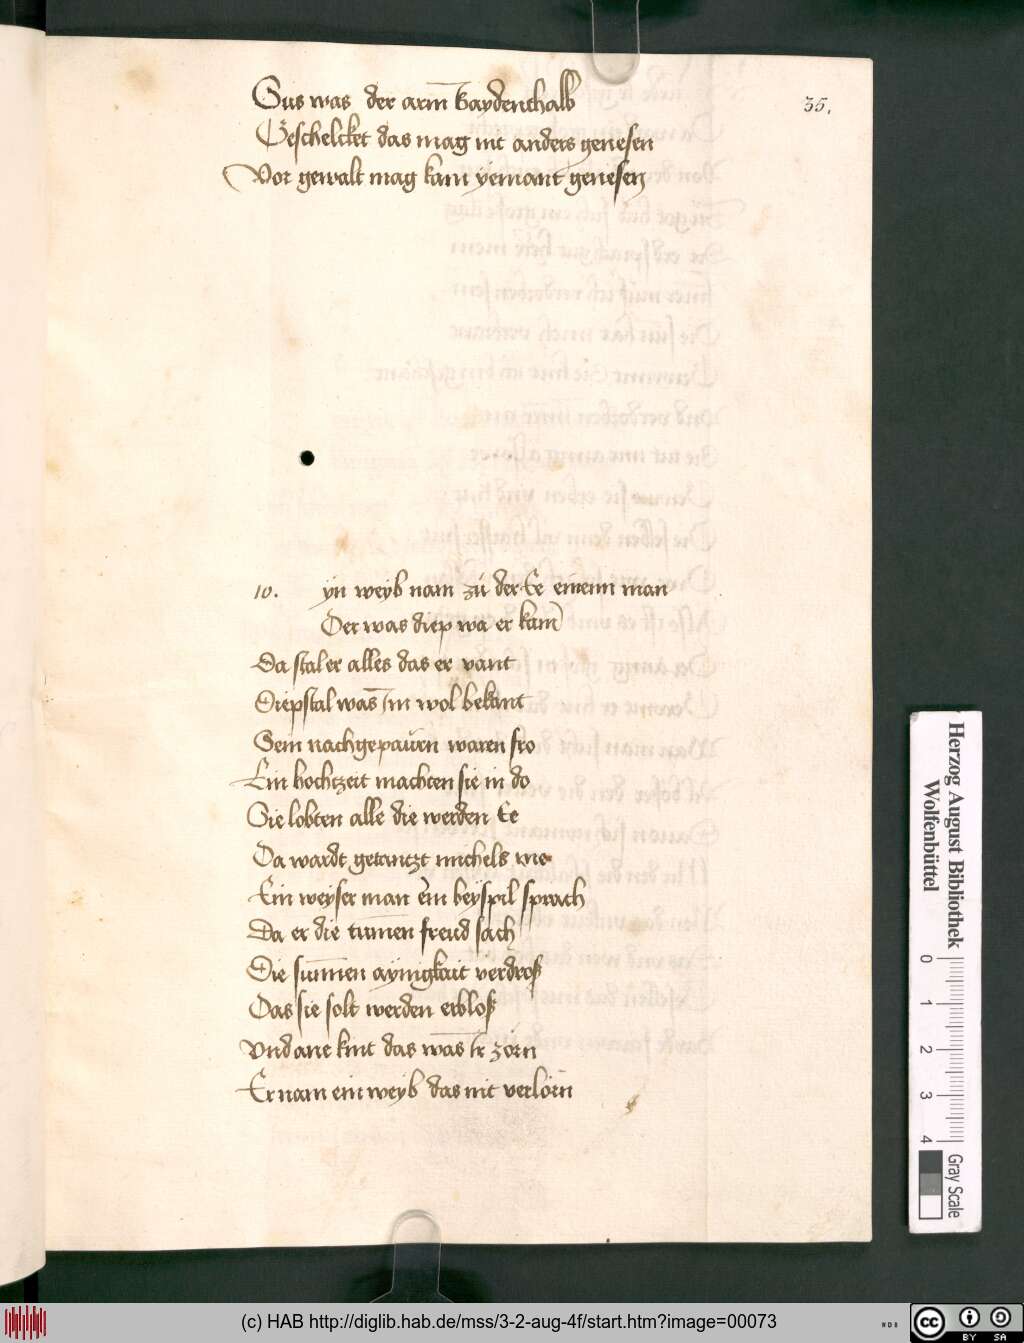 35.
Sus was der arm haydenthalb
Geschelcket das mag nit anders genesen
Vor gewalt mag kam yemant genesen
10. yn weyb nam zu der Ee einenn man
Der was diep wa er kam
Da stal er alles das er vant
Diepstal was im wol bekant
Sein nachgepauren waren fro
Ein hochtzeit machten sie in do
Sie lobten alle die werden Ee
Da wardt getantzt michels me
Ein weyser man ein beyspil sprach
Da er die tummen freud sach
Die sunnen aynigkait verdroß
Das sie solt werden erbloß
Vnd ane kint das was ir zorn
Er nam ein weyb das nit verlorn
Herzog August Bibliothek
Wolfenbüttel
0 1 2 3 4
Gray Scale
(c) HAB http://diglib.hab.de/mss/3-2-aug-4f/start.htm?image=00073
WDB
cc
BY SA